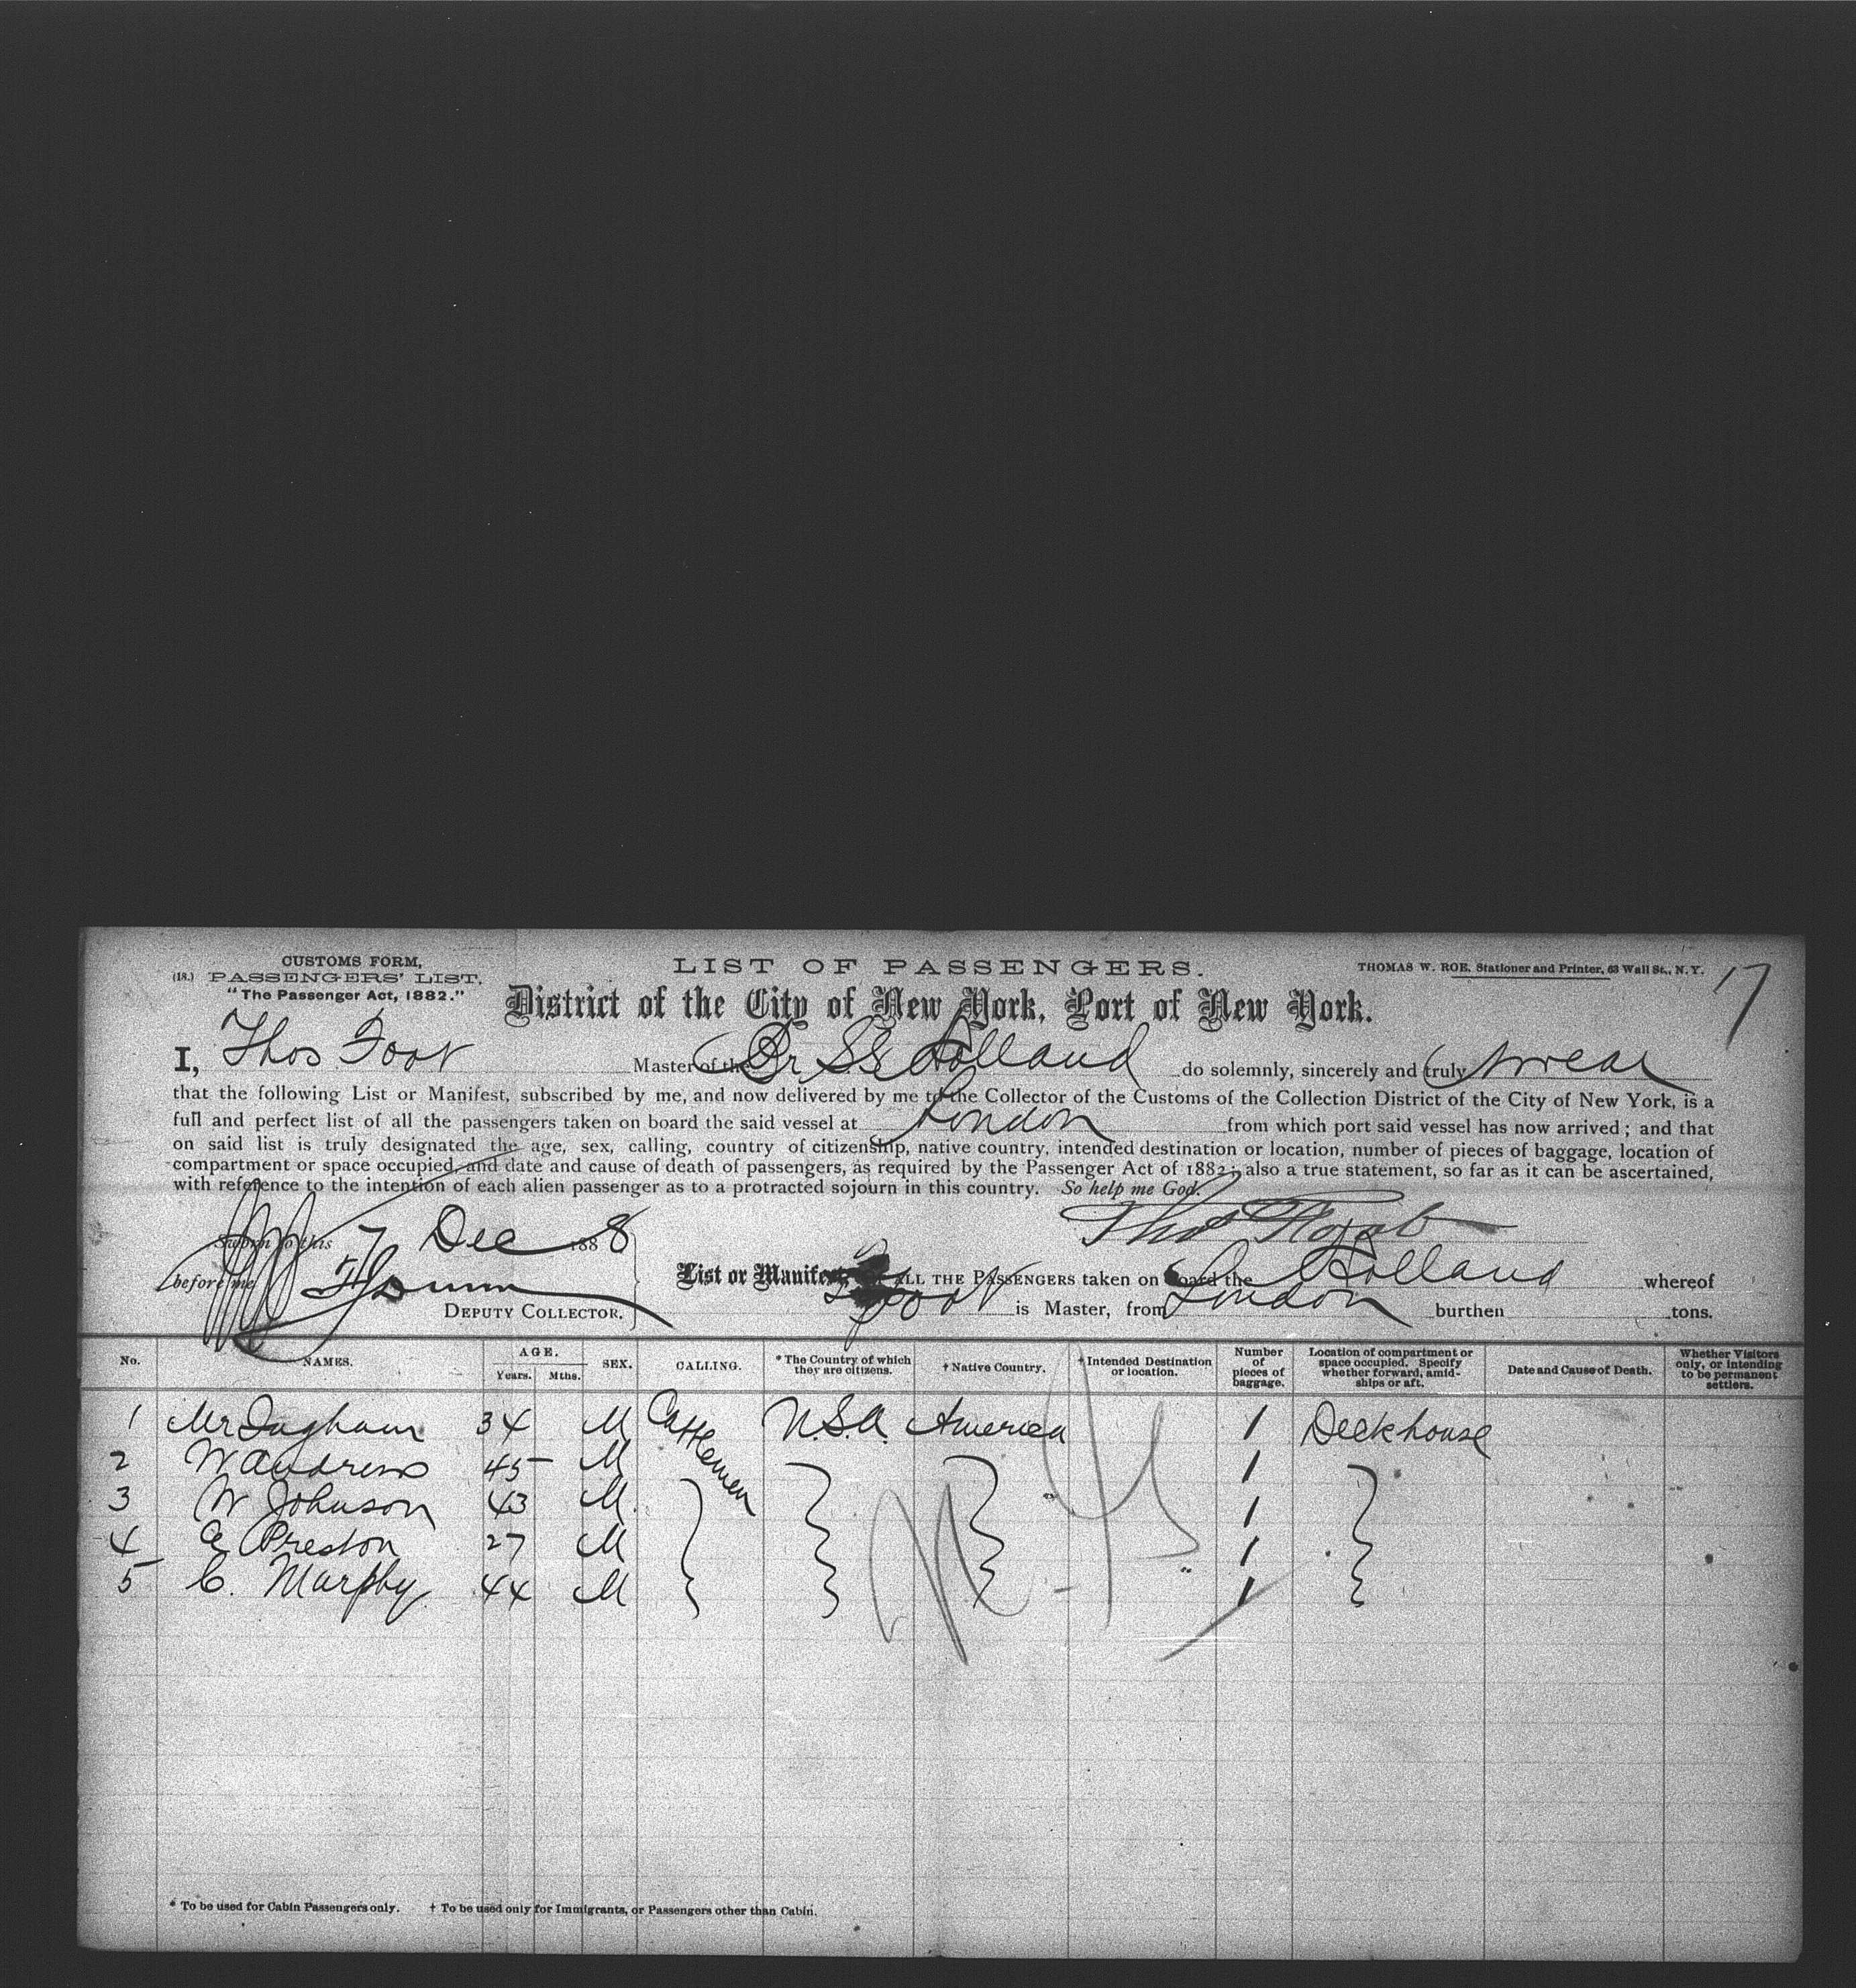 CUSTOMS FORM,
(18.) PASSENGERS' LIST.
"The Passenger Act, 1882."
LIST OF PASSENGERS.
THOMAS W. ROE, Stationer and Printer, 63 Wall St., N. Y.
17
District of the City of New York, Port of New York.
I, Thos Foot Master of the Br SS Holland do solemnly, sincerely and truly swear
that the following List or Manifest, subscribed by me, and now delivered by me to the Collector of the Customs of the Collection District of the City of New York, is a
full and perfect list of all the passengers taken on board the said vessel at London from which port said vessel has now arrived; and that
on said list is truly designated the age, sex, calling, country of citizenship, native country, intended destination or location, number of pieces of baggage, location of
compartment or space occupied, and date and cause of death of passengers, as required by the Passenger Act of 1882; also a true statement, so far as it can be ascertained,
with reference to the intention of each alien passenger as to a protracted sojourn in this country. So help me God.
Thos Foot
Sworn to this 7 Dec 1888
before me
DEPUTY COLLECTOR.
List or Manifest OF ALL THE PASSENGERS taken on board the Holland whereof
Foot is Master, from London burthen tons.
No. NAMES. AGE. Years. Mths. SEX. CALLING. * The Country of which they are citizens. † Native Country. † Intended Destination or location. Number of pieces of baggage. Location of compartment or space occupied. Specify whether forward, amidships or aft. Date and Cause of Death. Whether Visitors only, or intending to be permanent settlers.
1 Mr Ingham 34 M Cattlemen U.S.A. America 1 Deckhouse
2 W Andrews 45 M 1
3 W Johnson 43 M. 1
4 Preston 27 M 1
5 C. Murphy 44 M 1
* To be used for Cabin Passengers only. † To be used only for Immigrants, or Passengers other than Cabin.